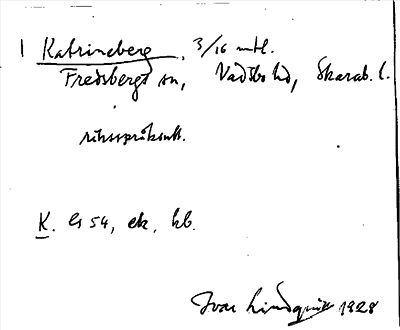 1 Katrineberg, 3/16 mtl.
Fredsbergs sn, Vadsbo hd, Skarab. l.
riksspråksutt.
K. G 54, ek, kb.
Ivar Lindquist 1928